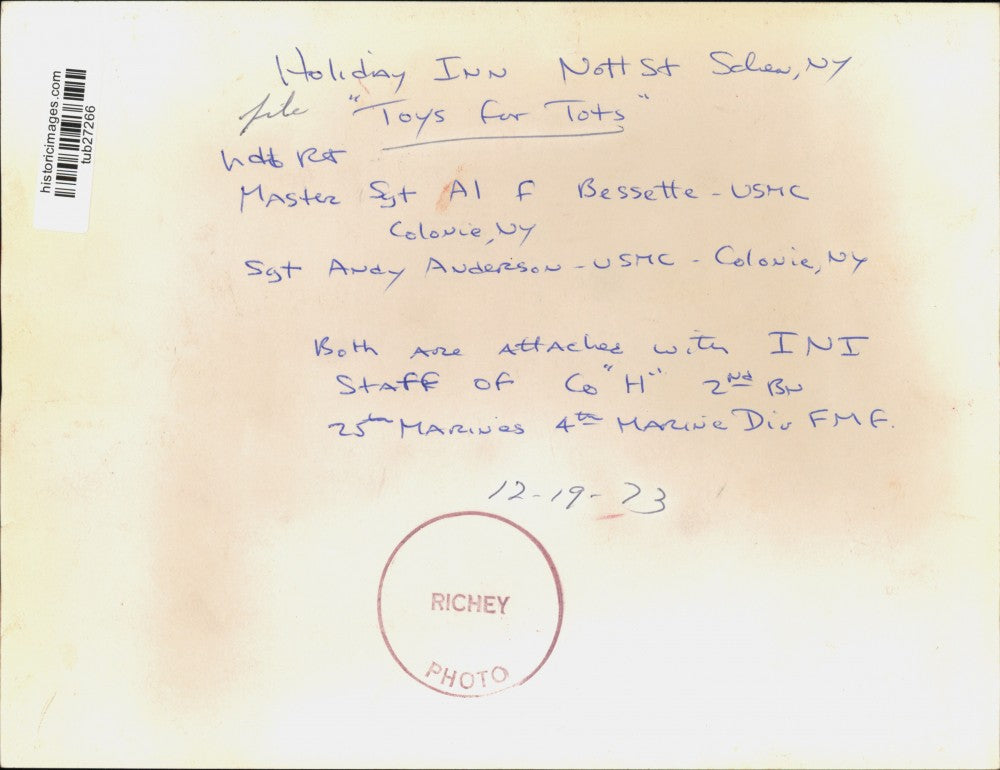 historicimages.com
tub27266
Holiday Inn Nott St Schen, NY
file "Toys for Tots"
Master Sgt Al F Bessette - USMC
Colonie, NY
Sgt Andy Anderson - USMC - Colonie, NY
Both are attached with INI
Staff of Co "H" 2nd Bn
25th Marines 4th Marine Div FMF.
12-19-73
RICHEY
PHOTO